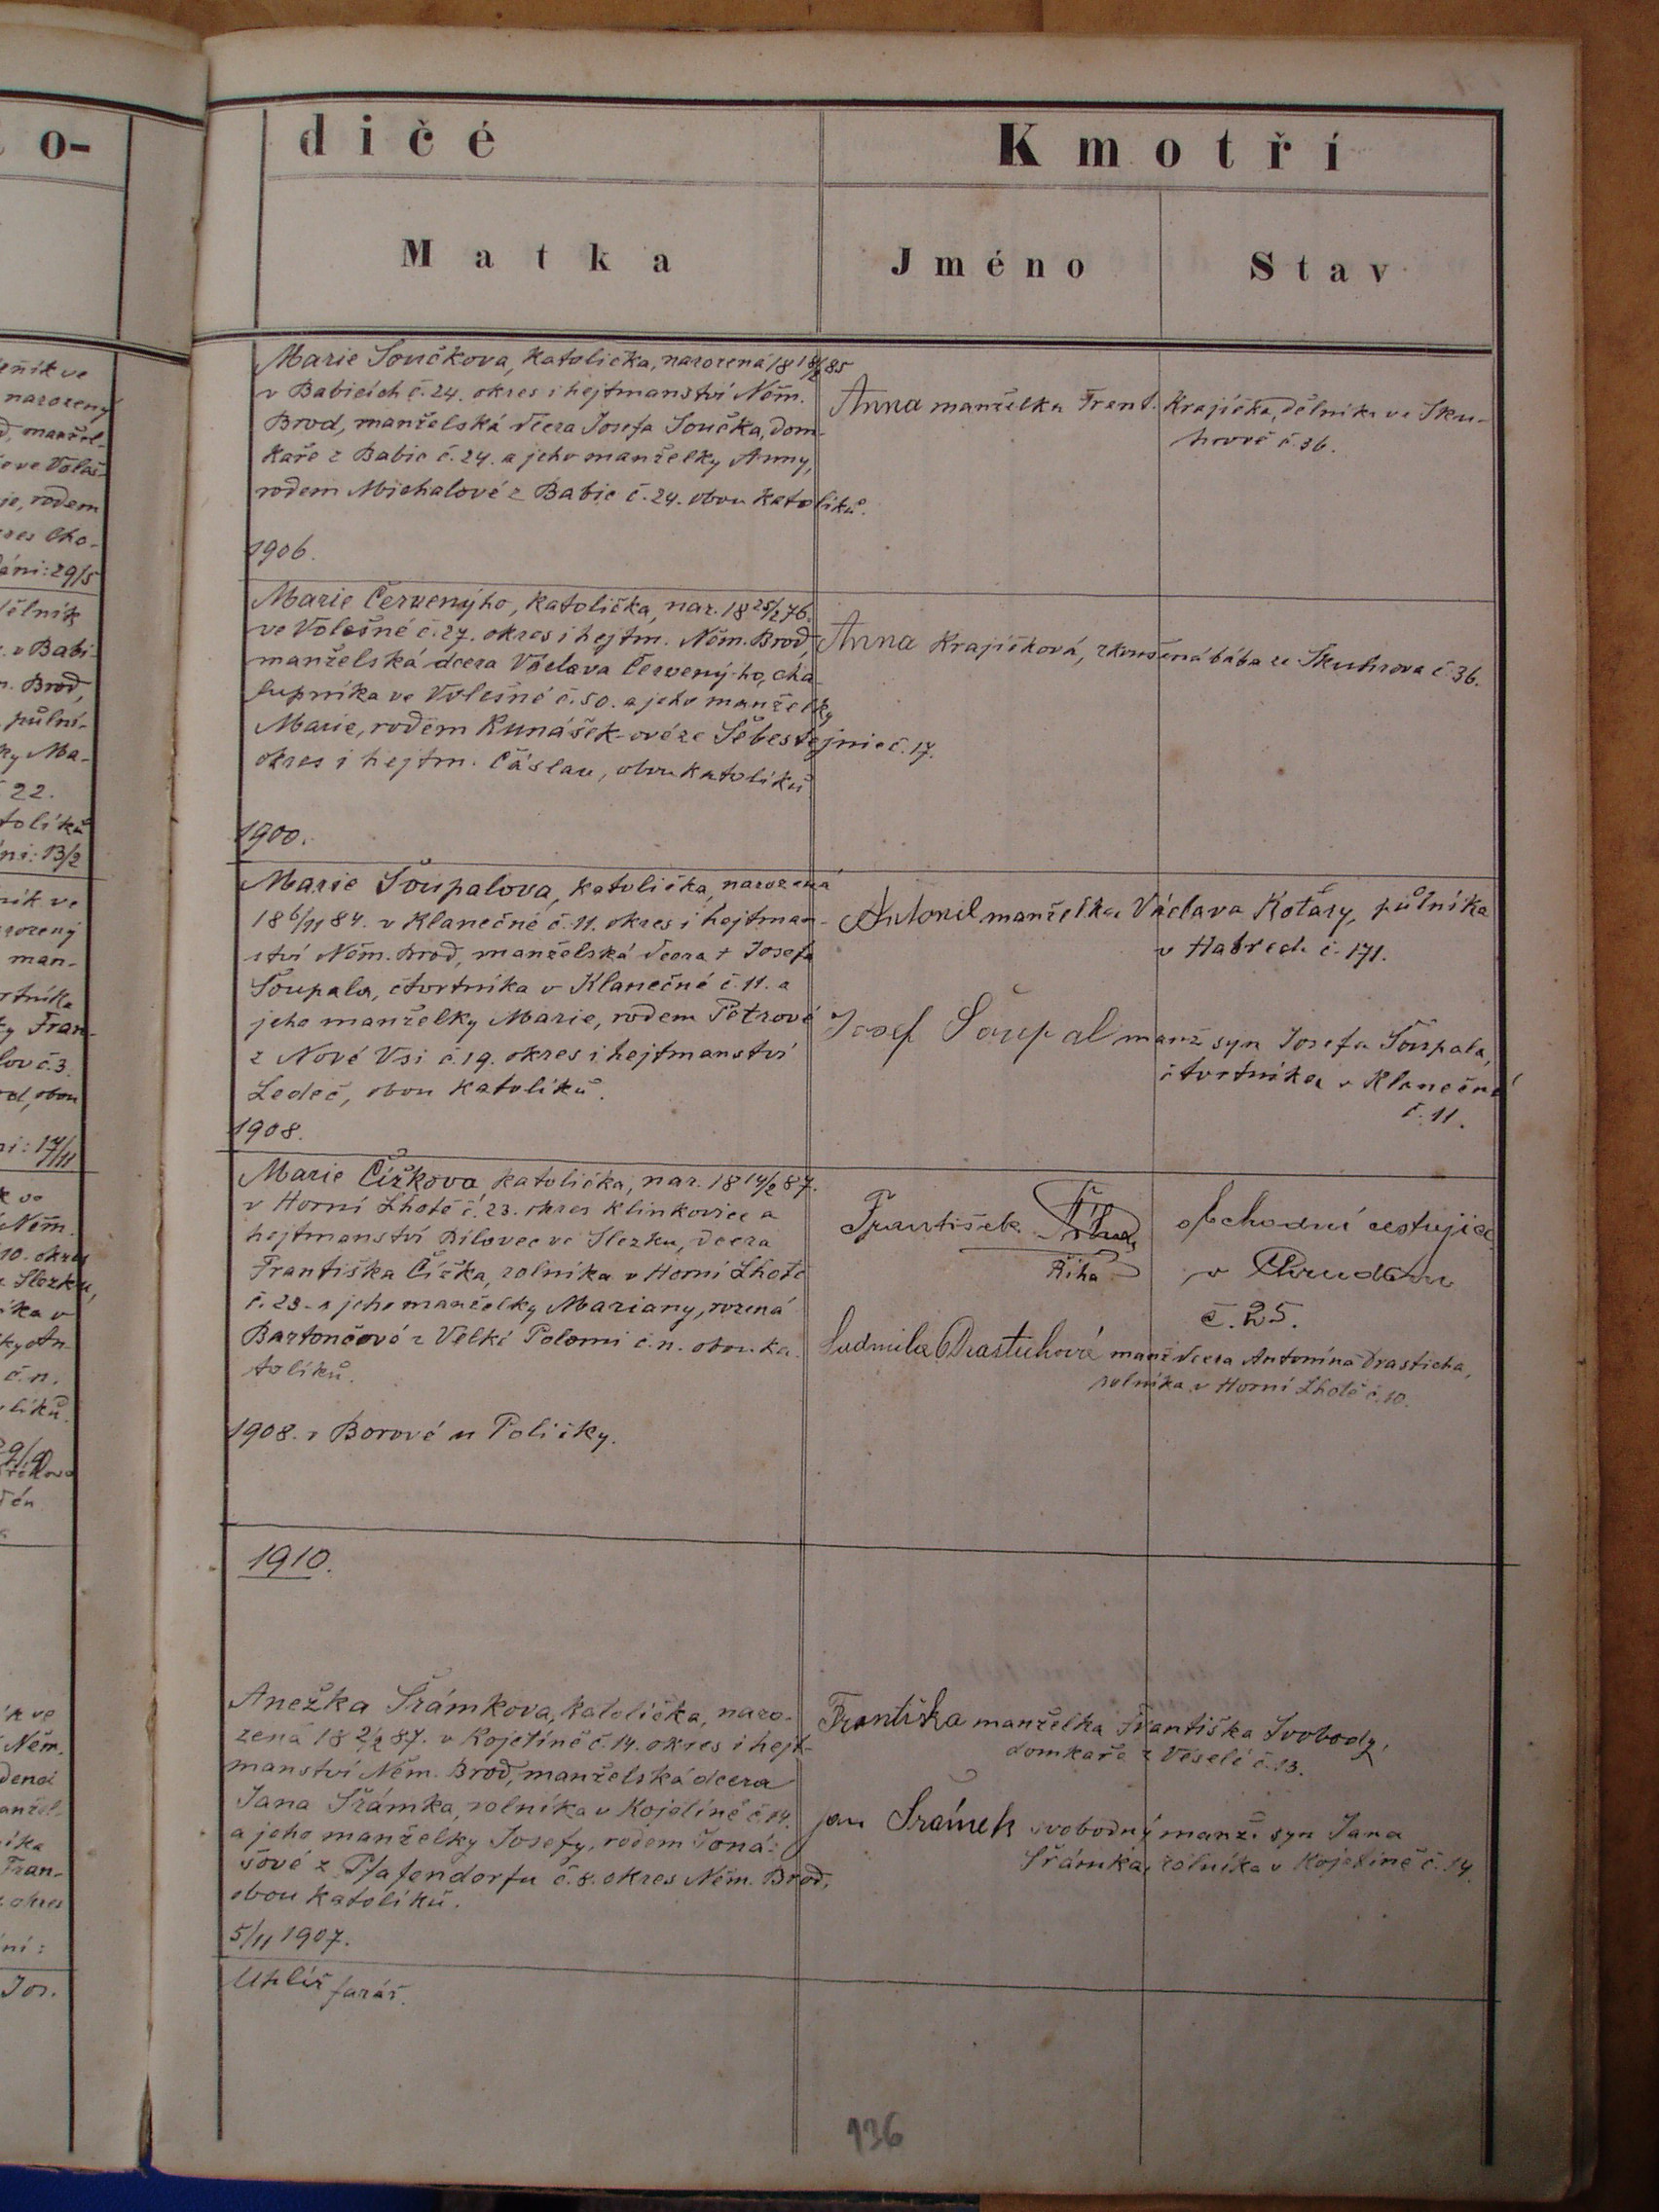 o-
dičé
Kmotří
Matka
Jméno
Stav
eník ve
narozený
manžel-
je, rodem
okres Cho-
29/5
dělník
v Babi-
Brod,
půlní-
ky Ma-
22.
tolíků
13/2
ník ve
narozený
man-
rtníka
ky Fran-
č. 3.
obou
17/11
Něm.
10. okres
Slezku,
íka v
č. n.
líků.
ík ve
Něm.
Fran-
okres
ní:
Jos.
Marie Součkova, katolička, narozená 18 18/2 85
v Babicích č. 24. okres i hejtmanství Něm.
Brod, manželská dcera Josefa Součka, dom-
kaře z Babic č. 24. a jeho manželky Anny,
rodem Michalové z Babic č. 24. obou katolíků.
1906.
Anna manželka Frant. Krajíčka, dělníka ve Sku-
hrově č. 36.
Marie Červenýho, katolička, nar. 18 25/2 76.
ve Volešné č. 27. okres i hejtm. Něm. Brod,
manželská dcera Václava Červenýho, cha-
lupníka ve Volešné č. 50. a jeho manželky
Marie, rodem Kunášek-ové ze Šebestějnic č. 17.
okres i hejtm. Čáslav, obou katolíků
1900.
Anna Krajíčková, zkoušená bába ze Skuhrova č. 36.
Marie Šoupalova, katolička, narozená
18 6/11 84. v Klanečné č. 11. okres i hejtman-
ství Něm. Brod, manželská dcera + Josefa
Šoupala, čtvrtníka v Klanečné č. 11. a
jeho manželky Marie, rodem Petrové
z Nové Vsi č. 19. okres i hejtmanství
Ledeč, obou katolíků.
1908.
manželka Václava Kotáry, půlníka
v Habrech č. 171.
Josef Šoupal manž. syn Josefa Šoupala,
čtvrtníka v Klanečné
č. 11.
Marie Čížkova, katolička, nar. 18 14/2 87.
v Horní Lhotě č. 23. okres Klinkovice a
hejtmanství Bílovec ve Slezku, dcera
Františka Čížka, rolníka v Horní Lhotě
č. 23. a jeho manželky Mariany, rozená
Bartončové z Velké Polomi č. n. obou ka-
tolíků.
1908. v Borové u Poličky.
František Říha
Říha
obchodní cestující
v Chrudimi
č. 25.
Ludmila Drastichová manž. dcera Antonína Drasticha,
rolníka v Horní Lhotě č. 10.
1910.
Anežka Šrámkova, katolička, naro-
zená 18 2/2 87. v Kojetíně č. 14. okres i hejt-
manství Něm. Brod, manželská dcera
Jana Šrámka, rolníka v Kojetíně č. 14.
a jeho manželky Josefy, rodem Joná-
šové z Pfafendorfu č. 8. okres Něm. Brod,
obou katolíků.
5/11 1907.
Uhlíř farář.
Františka manželka Františka Svobody,
domkaře z Veselé č. 13.
Jan Šrámek svobodný manž. syn Jana
Šrámka, rolníka v Kojetíně č. 14.
136